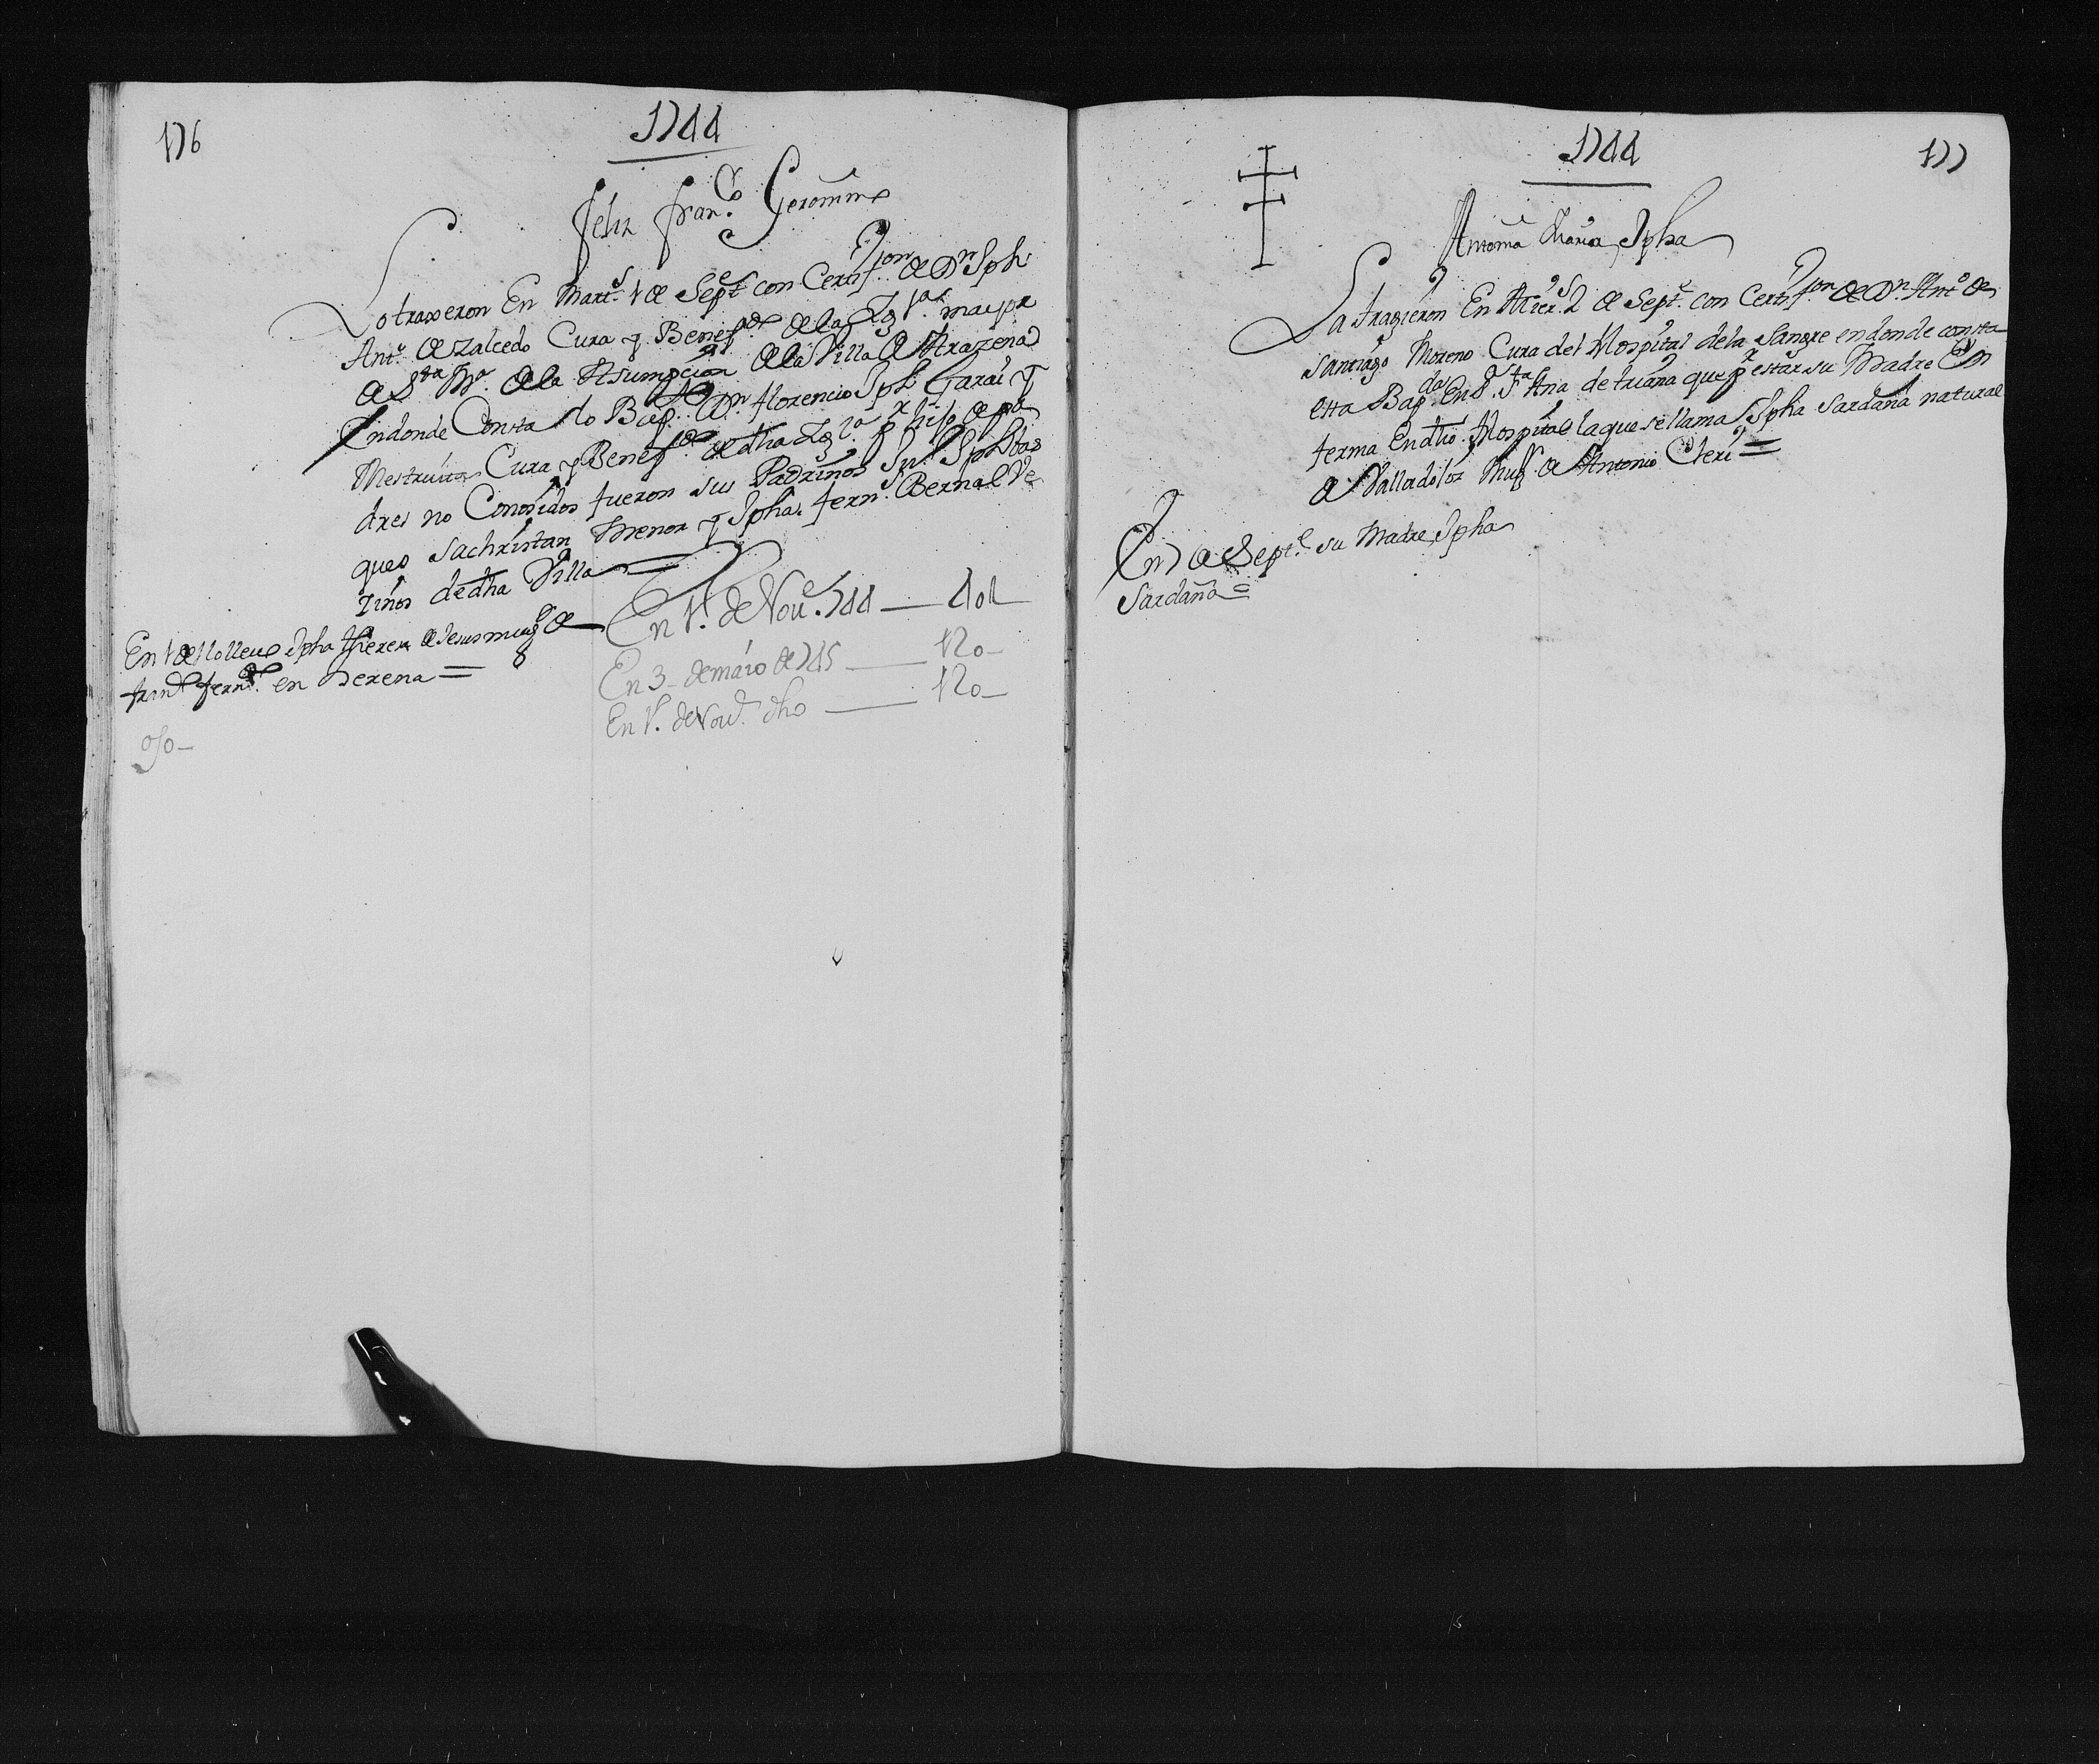 176
1744
Feliz Fran.co Geronimo
Lo traxeron En Mart.s 1 de Sep.e con Certif.on de Dn Jph
Ant.o de Zalcedo Cura y Benef.do de la Yg.a mayor
de S.ta M.a de la Asumpcion de la Villa de Arazena
En donde Consta lo Bap.o Dn Florencio Jph Garai y
Cura y Benef.do de dha Yg.a p.r hijo de pa
dres no Conosidos fueron sus Padrinos Ju.o Jph Bas
ques Sachristan Menor y Jpha Fern.z Bernal Ve
zinos de dha Villa
En 1 de la lleuo Jpha de Jesus mug.r de
Fran.co Fern.dz en =
En 1.o de Nou.e 744 — 404
En 3 de maio de 745 — 120
En 1.o de Nou.e dho — 120
1744
177
Antonia Maria Jpha
La tragieron En Mier.s 2 de Sept.e con Certif.on de Dn Ant.o de
Santiago Moreno Cura del Hospital de la Sangre en donde consta
esta Bap.da En S.ra S.ta Ana de triana que p.r estar su Madre En
ferma En dho Hospital la que se llama Jpha Sardaña natural
de Valladoloz Mug.r de Antonio Cleri =
En 7 de Sept.e su Madre Jpha
Sardaña =